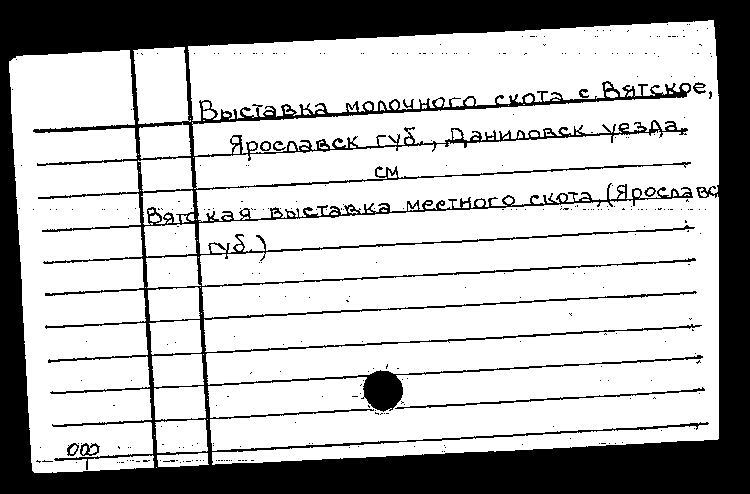 Выставка молочного скота с. Вятское,
Ярославск губ., Даниловск уезда,
см
Вятская выставка местного скота, (Ярославск
губ.)